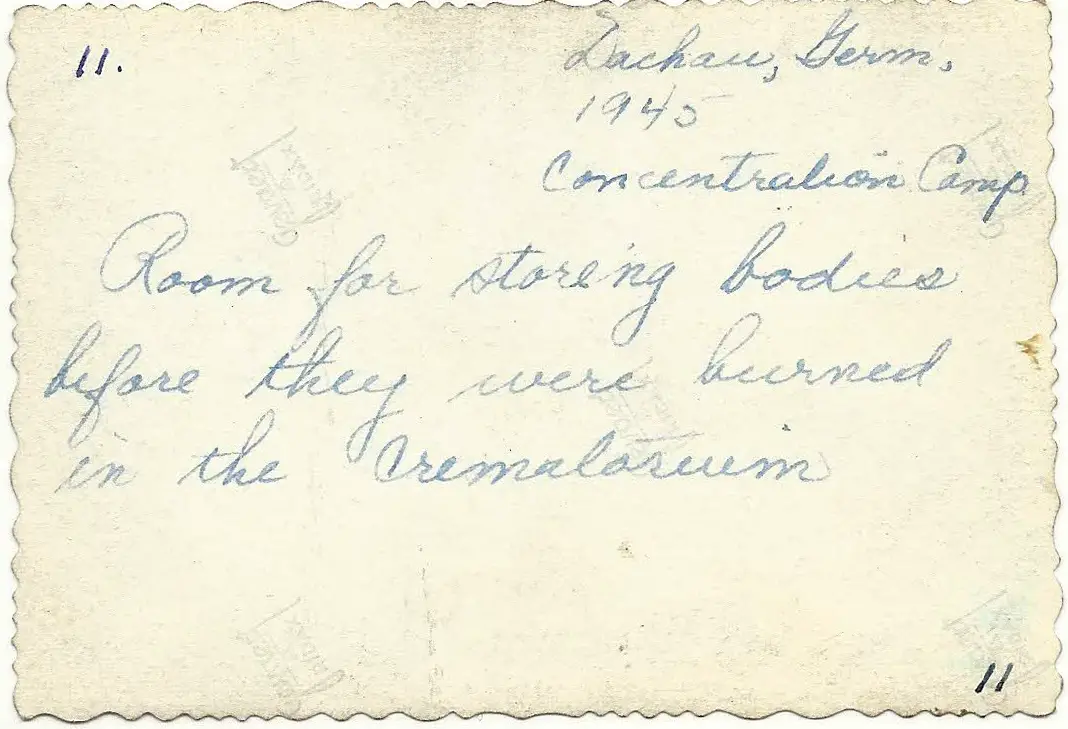 11.
Dachau, Germ,
1945
Concentration Camp
Room for storeing bodies
before they were burned
in the Crematorium
11